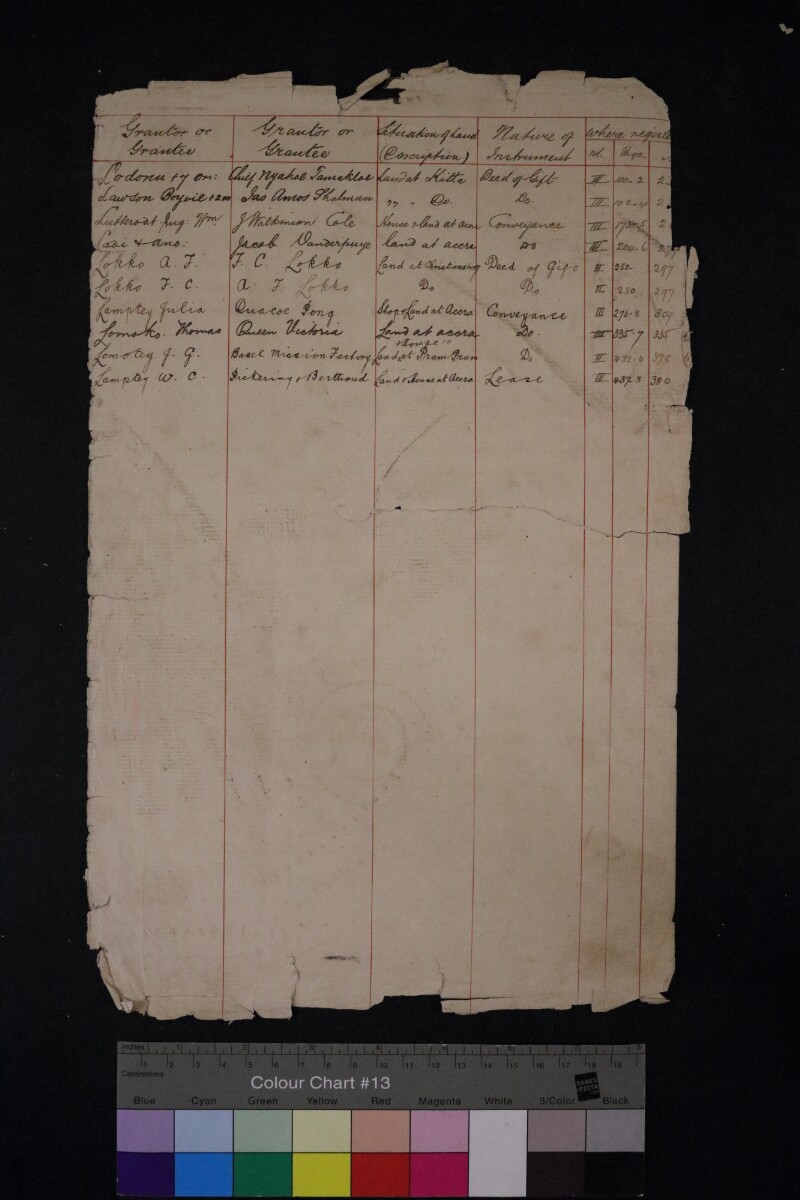 Grantor or Grantor or Situation of Land Nature of where regist
Grantee Grantee (Description) Instrument vol. Page
Lodonu + 7 ors: Chief Nyahoe Tamakloe Land at Kitta Deed of Gift III 100-2 2
Lawson Boysie + an Jas Amos Tholman " - Do. Do. III 102-4 2
Lutterodt Aug: Wm J Wilkinson Cole House & land at accra Conveyance III 173-5 2
+ ano: Jacob Vanderpuye land at accra Do III 204-6
Lokko A. F. F. C. Lokko Land at Deed of Gift II 250 297
Lokko F. C. A F Lokko Do Do II 250 297
Lamptey Julia Quacoe Pong Shop & Land at Accra Conveyance III 276-8 309
Lomoko. Thomas Queen Victoria Land at accra Do. III 335-7 335
+ House
Lomotey J. G. Basel Mission Factory Land at Pram Pram Do II 378
Lamptey W. C. Pickering & Berthoud Land & House at Accra Lease III 437-8 380
Inches
Centimetres
Colour Chart #13
Blue Cyan Green Yellow Red Magenta White 3/Color Black